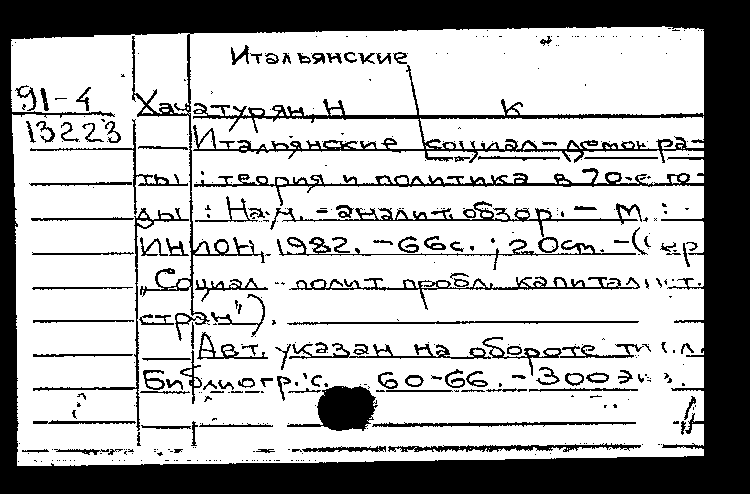 Итальянские
91-4 Хачатурян, Н К
13223
Итальянские социал-демокра-
ты : теория и политика в 70-е го-
ды : Науч.-аналит. обзор. - М. :
ИНИОН, 1982. - 66 с. ; 20 см. - (Сер.
"Социал.-полит. пробл. капиталист.
стран").
Авт. указан на обороте тит. л.
Библиогр.: с. 60-66. - 300 экз.